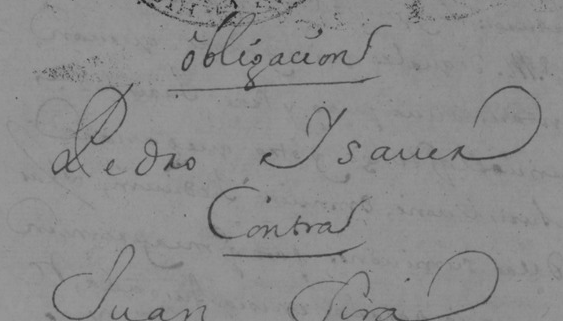 obligacion
Pedro Ysauer
Contra
Juan